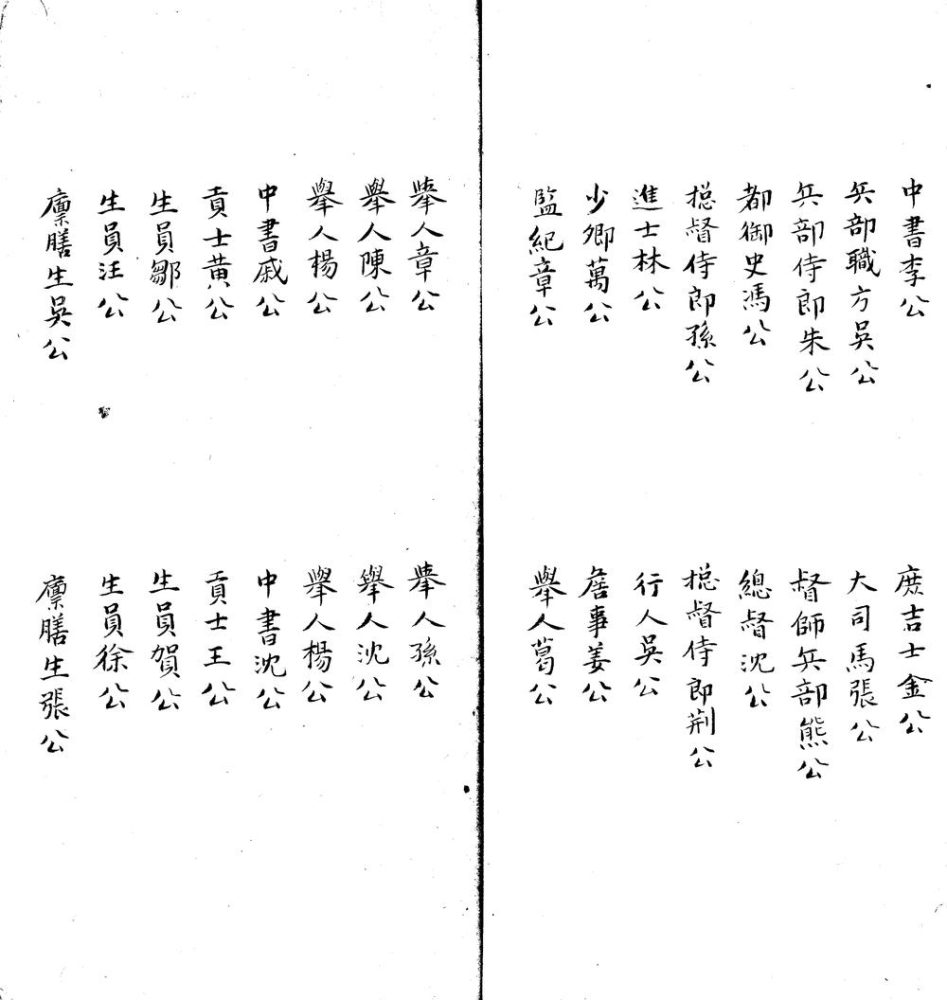 中書李公
庶吉士金公
兵部職方吳公
大司馬張公
兵部侍郎朱公
督師兵部熊公
都御史馮公
總督沈公
捴督侍郎孫公
捴督侍郎荆公
進士林公
行人吳公
少卿萬公
詹事姜公
監紀章公
舉人葛公
舉人章公
舉人孫公
舉人陳公
舉人沈公
舉人楊公
舉人楊公
中書戚公
中書沈公
貢士黃公
貢士王公
生員鄒公
生員賀公
生員汪公
生員徐公
廪膳生吳公
廪膳生張公